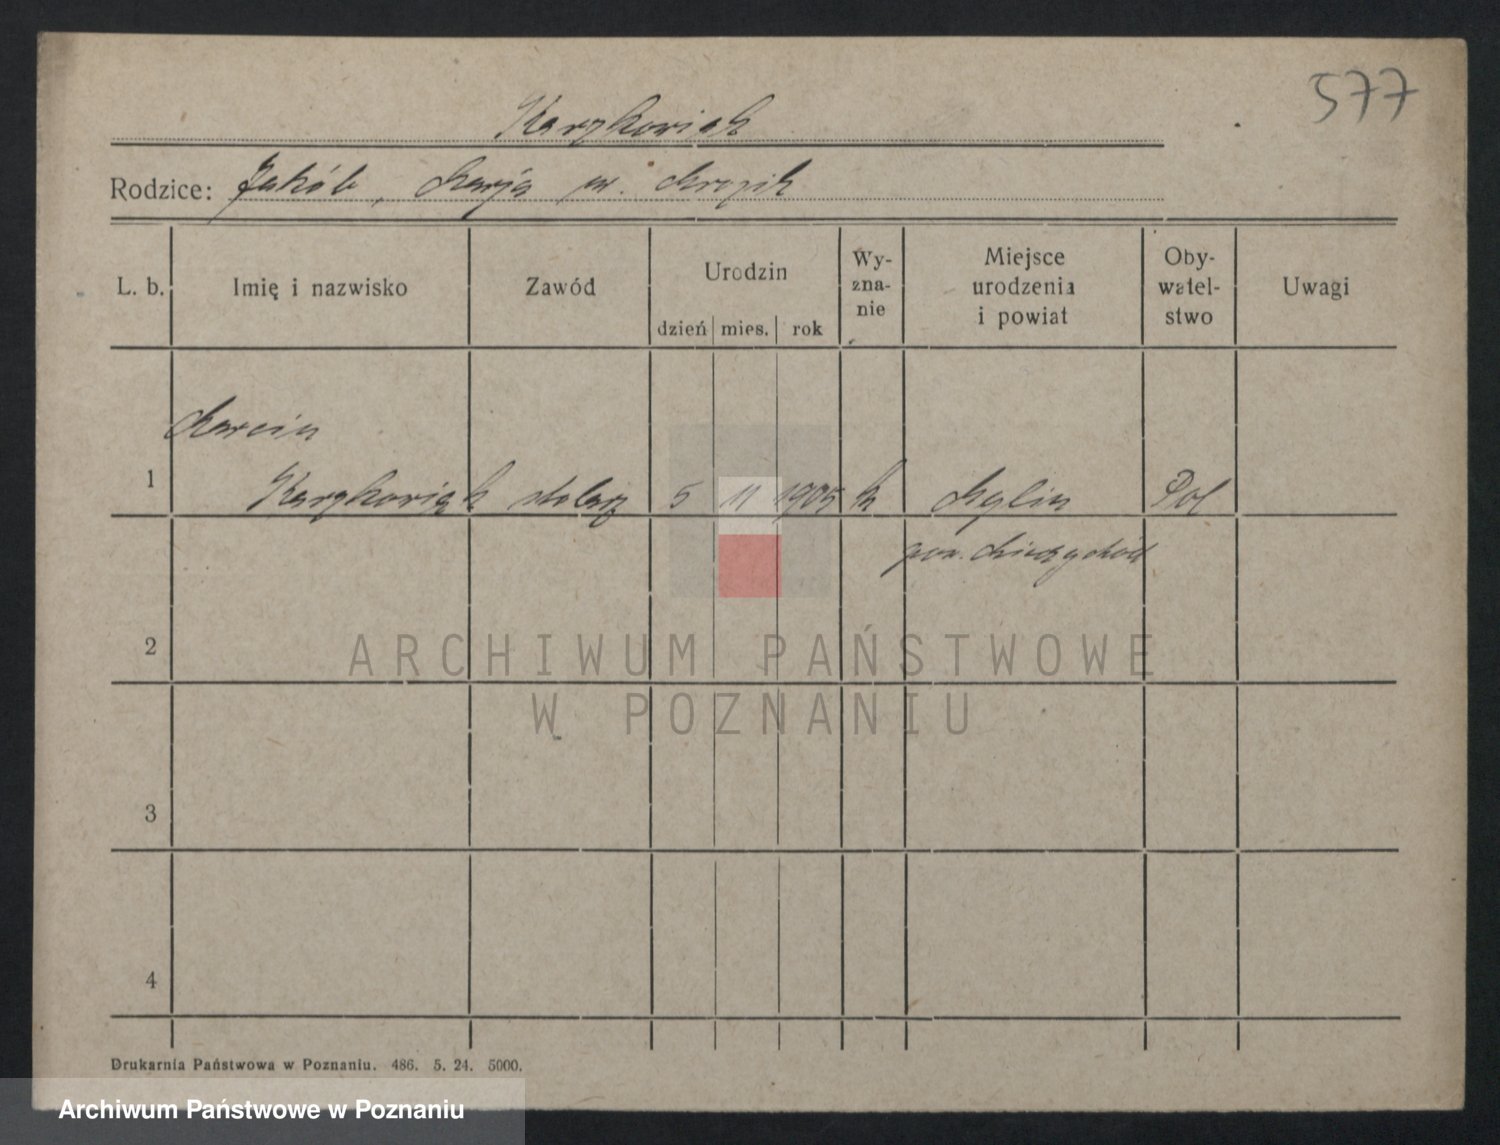 577
Karzkowiak
Rodzice: Jakób, Marja ur. Mrozik
L. b.
Imię i nazwisko
Zawód
Urodzin
dzień mies. rok
Wy-
zna-
nie
Miejsce
urodzenia
i powiat
Oby-
watel-
stwo
Uwagi
Marcin
1 Karzkowiak stolarz 5 11 1905 k Mylin Pol
pow. Międzychód
2
ARCHIWUM PAŃSTWOWE
W POZNANIU
3
4
Drukarnia Państwowa w Poznaniu. 486. 5. 24. 5000.
Archiwum Państwowe w Poznaniu